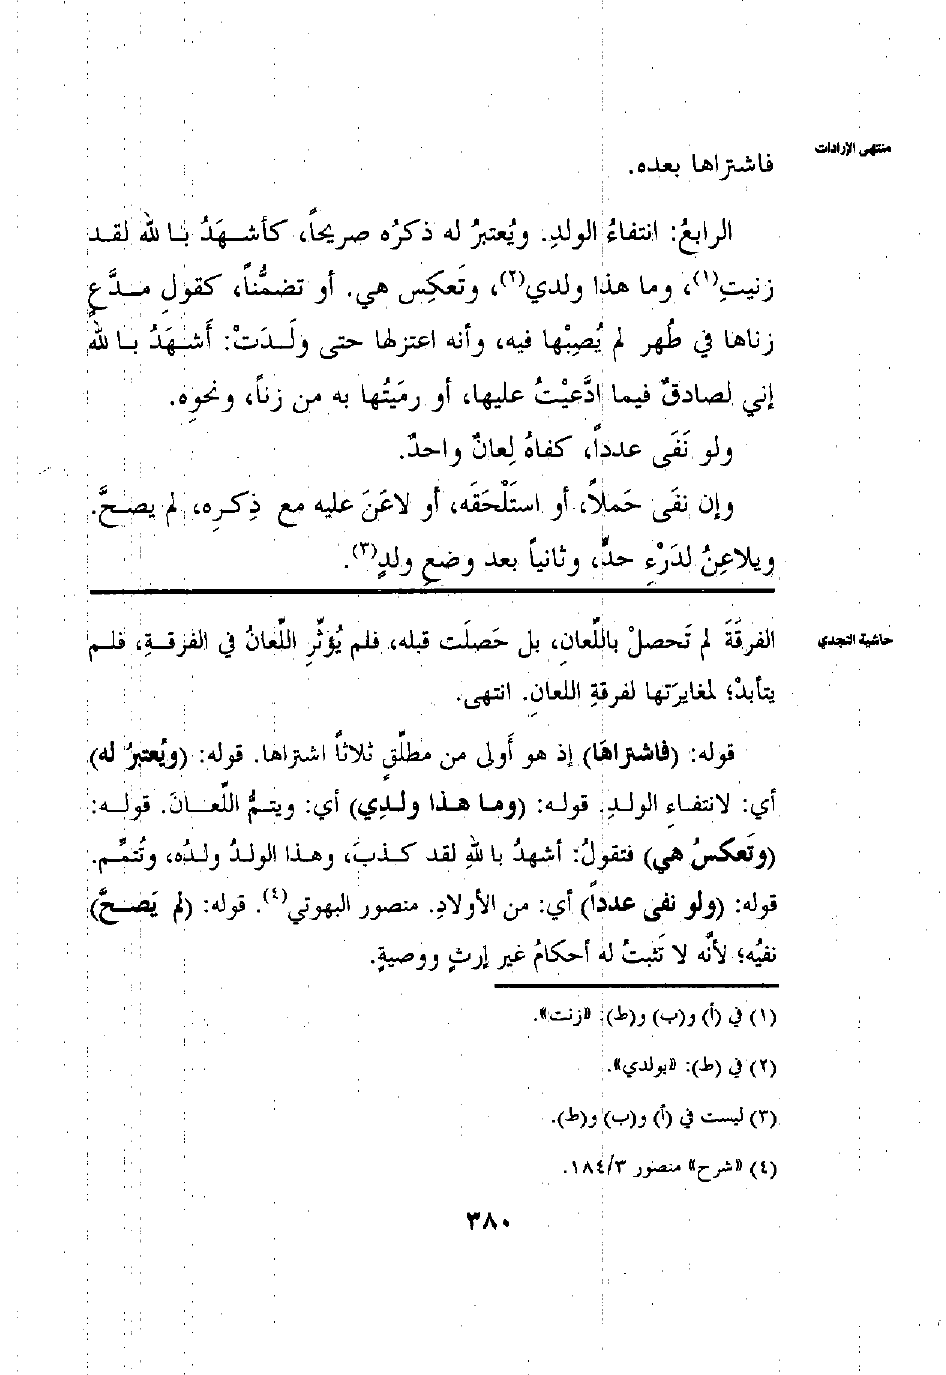 منتهى الإرادات
فاشتراها بعده.
الرابعُ: انتفاءُ الولدِ. ويُعتبرُ له ذكرُه صريحاً، كأشهَدُ با لله لقد
زنيتِ(١)، وما هذا ولدي(٢)، وتَعكِس هي. أو تضمُّناً، كقولِ مدَّعٍ
زناها في طُهر لم يُصِبْها فيه، وأنه اعتزلها حتى ولَدَتْ: أَشهَدُ با لله
إني لصادقٌ فيما ادَّعيْتُ عليها، أو رمَيتُها به من زناً، ونحوِه.
ولو نَفَى عدداً، كفاهُ لِعانٌ واحدٌ.
وإن نفَى حَملاً، أو استَلْحَقَه، أو لاعَنَ عليه مع ذِكرِه، لم يصحَّ.
ويلاعِنُ لدَرْءِ حدٍّ، وثانياً بعد وضعِ ولدٍ(٣).
حاشية النجدي
الفرقَةَ لم تَحصلْ باللِّعانِ، بل حَصلَت قبله، فلم يُؤثِّرِ اللِّعانُ في الفرقةِ، فلم
يتأبدْ؛ لمغايرَتها لفرقةِ اللعانِ. انتهى.
قوله: (فاشتراهَا) إذ هو أَولى من مطلِّقٍ ثلاثاً اشتراها. قوله: (ويُعتبرُ له)
أي: لانتفاءِ الولدِ. قوله: (وما هذا ولدِي) أي: ويتمُّ اللِّعانَ. قوله:
(وتَعكسُ هي) فتقولُ: أشهدُ با للهِ لقد كذبَ، وهذا الولدُ ولدُه، وتُتمِّم.
قوله: (ولو نفى عدداً) أي: من الأولادِ. منصور البهوتي(٤). قوله: (لم يَصحَّ)
نفيُه؛ لأنَّه لا تَثبتُ له أحكامُ غير إرثٍ ووصيةٍ.
(١) في (أ) و(ب) و(ط): «زنت».
(٢) في (ط): «بولدي».
(٣) ليست في (أ) و(ب) و(ط).
(٤) «شرح» منصور ١٨٤/٣.
٣٨٠